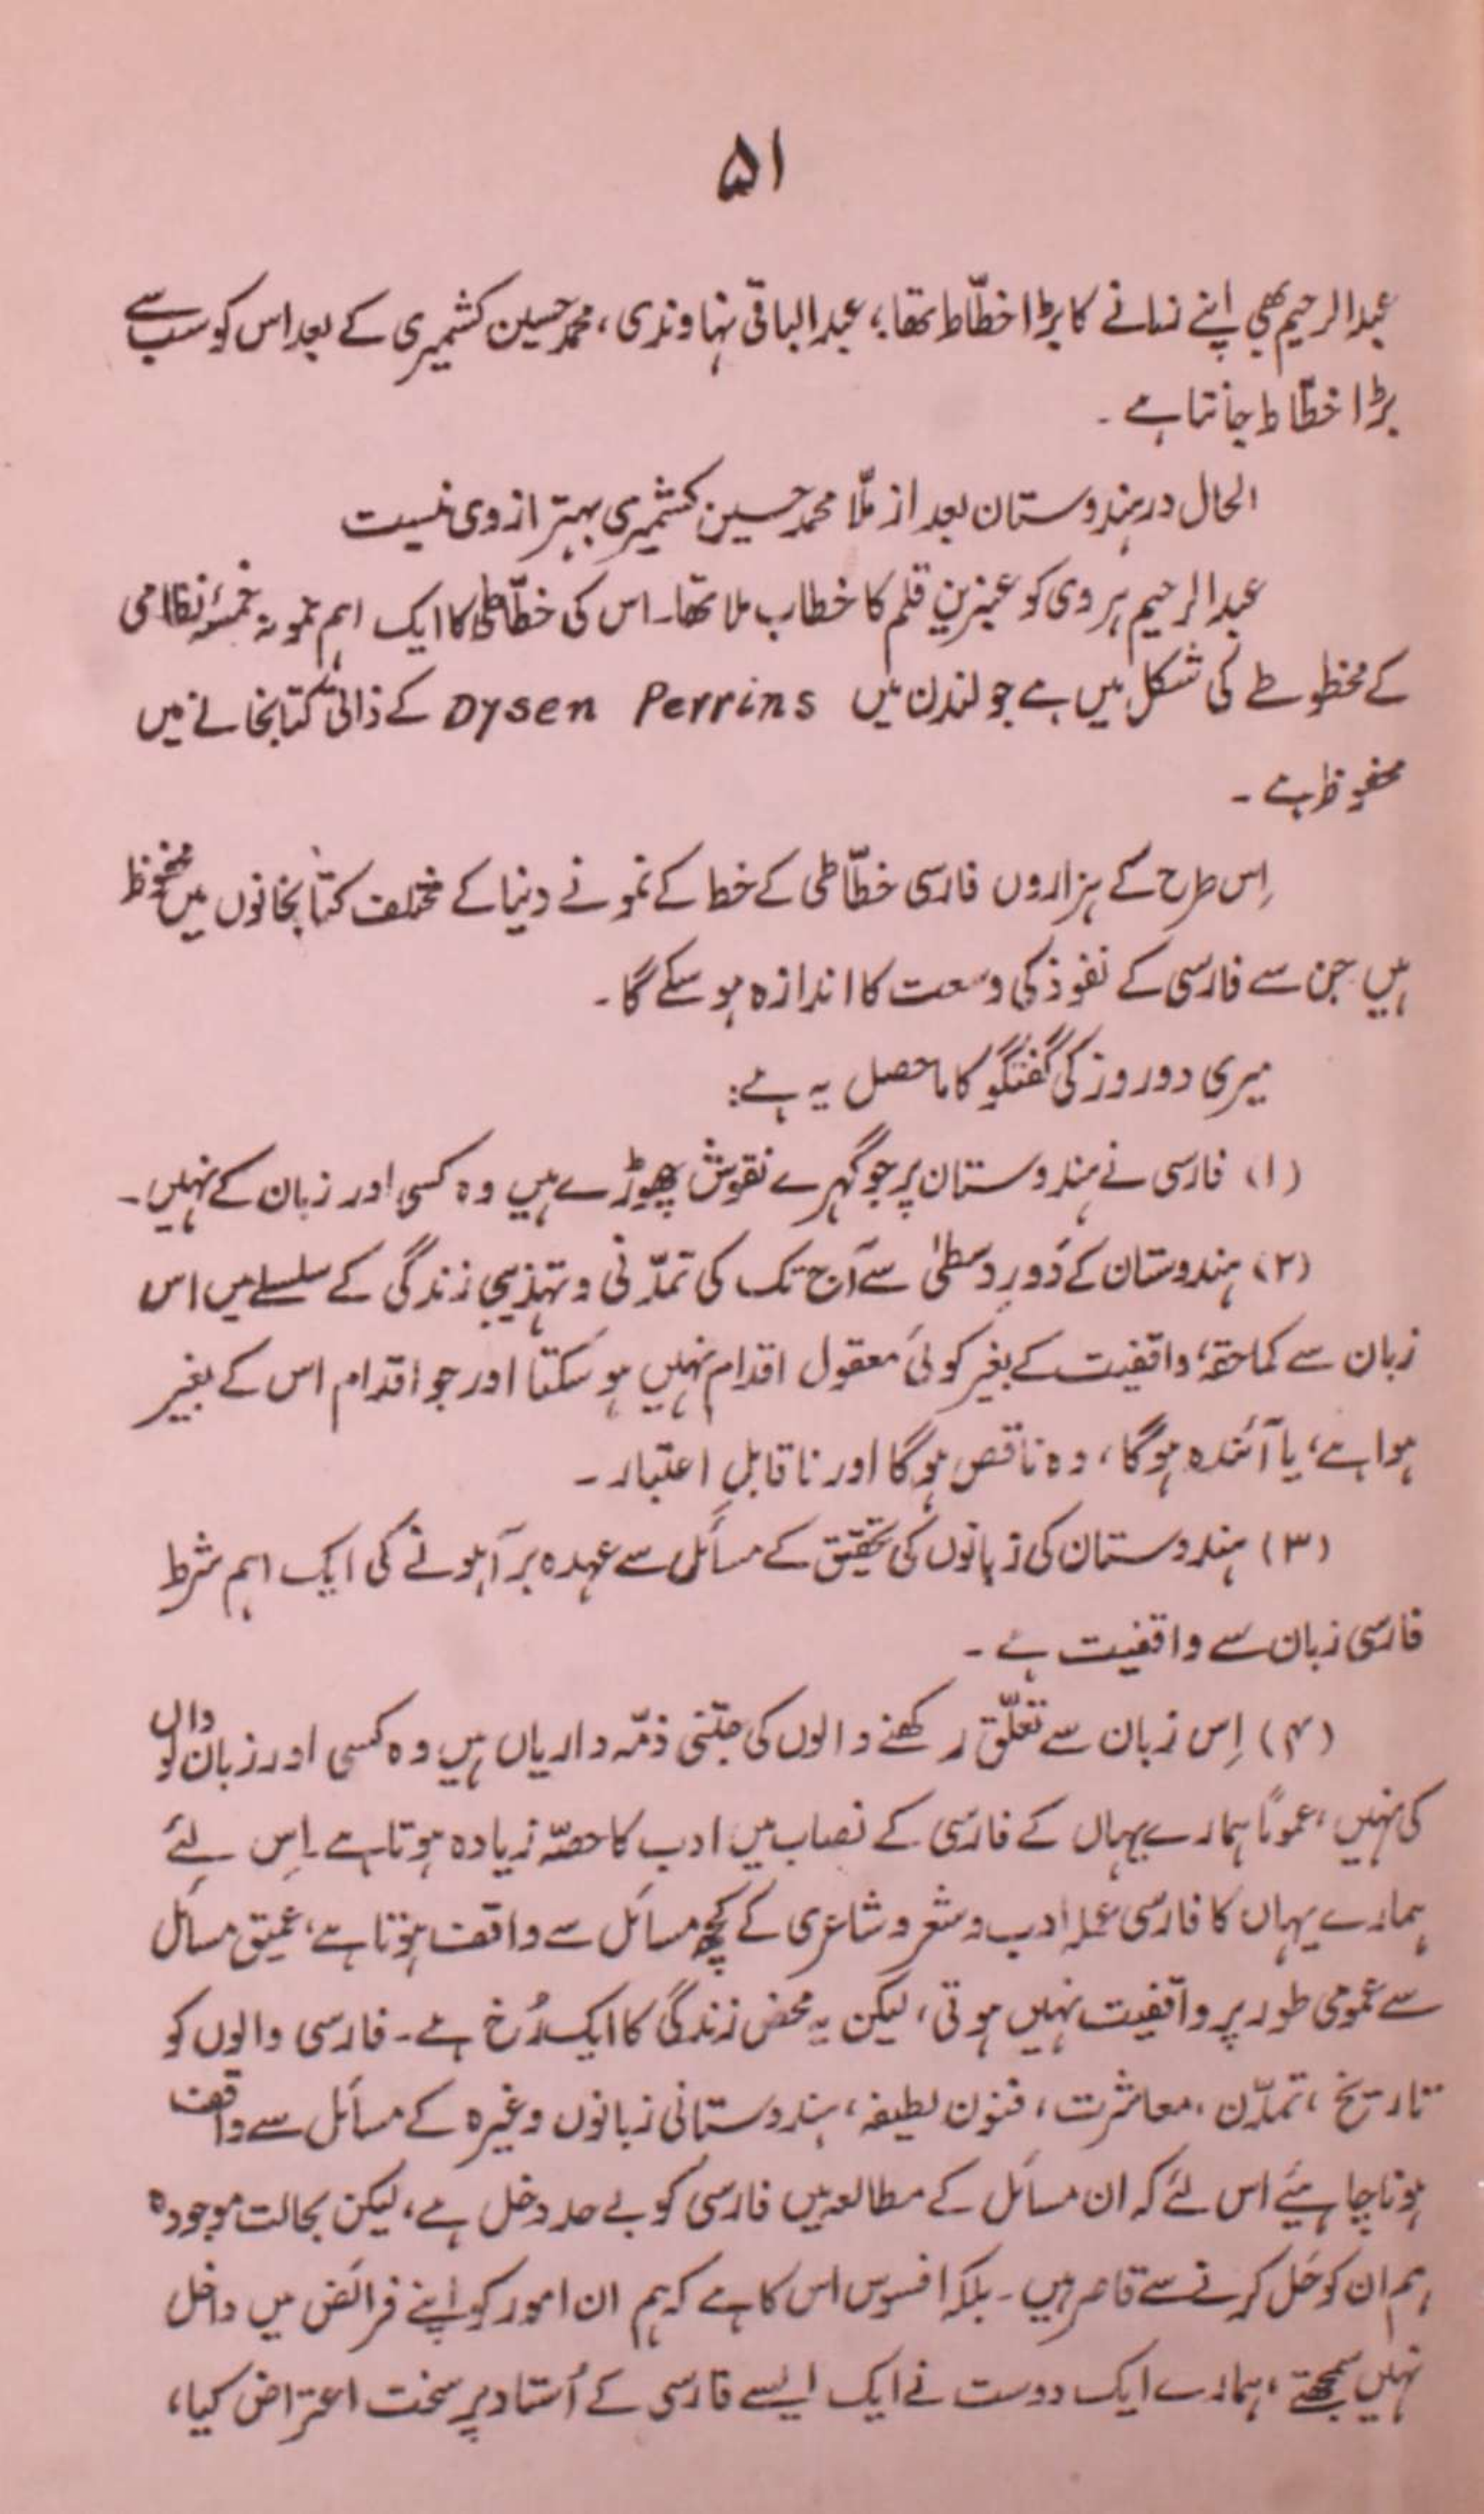 ۵۱
عبدالرحیم بھی اپنے زمانے کا بڑا خطّاط تھا؛ عبدالباقی نہاوندی، محمد حسین کشمیری کے بعد اس کو سب سے
بڑا خطّاط جانتا ہے ۔
الحال در ہندوستان بعد از ملّا محمد حسین کشمیری بہتر از وی نیست
عبدالرحیم ہروی کو عنبرین قلم کا خطاب ملا تھا۔ اس کی خطّاطی کا ایک اہم نمونہ خمسۂ نظامی
کے مخطوطے کی شکل میں ہے جو لندن میں Dysen Perrins کے ذاتی کتابخانے میں
محفوظ ہے ۔
اِس طرح کے ہزاروں فارسی خطّاطی کے خط کے نمونے دنیا کے مختلف کتابخانوں میں محفوظ
ہیں جن سے فارسی کے نفوذ کی وسعت کا اندازہ ہو سکے گا ۔
میری دو روز کی گفتگو کا ماحصل یہ ہے:
(۱) فارسی نے ہندوستان پر جو گہرے نقوش چھوڑے ہیں وہ کسی اور زبان کے نہیں ۔
(۲) ہندوستان کے دَورِ وسطیٰ سے آج تک کی تمدّنی و تہذیبی زندگی کے سلسلے میں اس
زبان سے کماحقہٗ واقفیت کے بغیر کوئی معقول اقدام نہیں ہو سکتا اور جو اقدام اس کے بغیر
ہوا ہے، یا آئندہ ہوگا، وہ ناقص ہوگا اور ناقابلِ اعتبار ۔
(۳) ہندوستان کی زبانوں کی تحقیق کے مسائل سے عہدہ برآ ہونے کی ایک اہم شرط
فارسی زبان سے واقفیت ہے ۔
(۴) اِس زبان سے تعلّق رکھنے والوں کی جتنی ذمّہ داریاں ہیں وہ کسی اور زبان والوں
کی نہیں، عموماً ہمارے یہاں کے فارسی کے نصاب میں ادب کا حصّہ زیادہ ہوتا ہے۔ اِس لئے
ہمارے یہاں کا فارسی عملہ ادب و شعر و شاعری کے کچھ مسائل سے واقف ہوتا ہے، عمیق مسائل
سے عمومی طور پر واقفیت نہیں ہوتی، لیکن یہ محض زندگی کا ایک رُخ ہے ۔ فارسی والوں کو
تاریخ، تمدّن، معاشرت، فنون لطیفہ، ہندوستانی زبانوں وغیرہ کے مسائل سے واقف
ہونا چاہیئے اس لئے کہ ان مسائل کے مطالعہ میں فارسی کو بے حد دخل ہے، لیکن بحالت موجودہ
ہم ان کو حَل کرنے سے قاصر ہیں ۔ بلکہ افسوس اس کا ہے کہ ہم ان امور کو اپنے فرائض میں داخل
نہیں سمجھتے، ہمارے ایک دوست نے ایک ایسے فارسی کے اُستاد پر سخت اعتراض کیا،